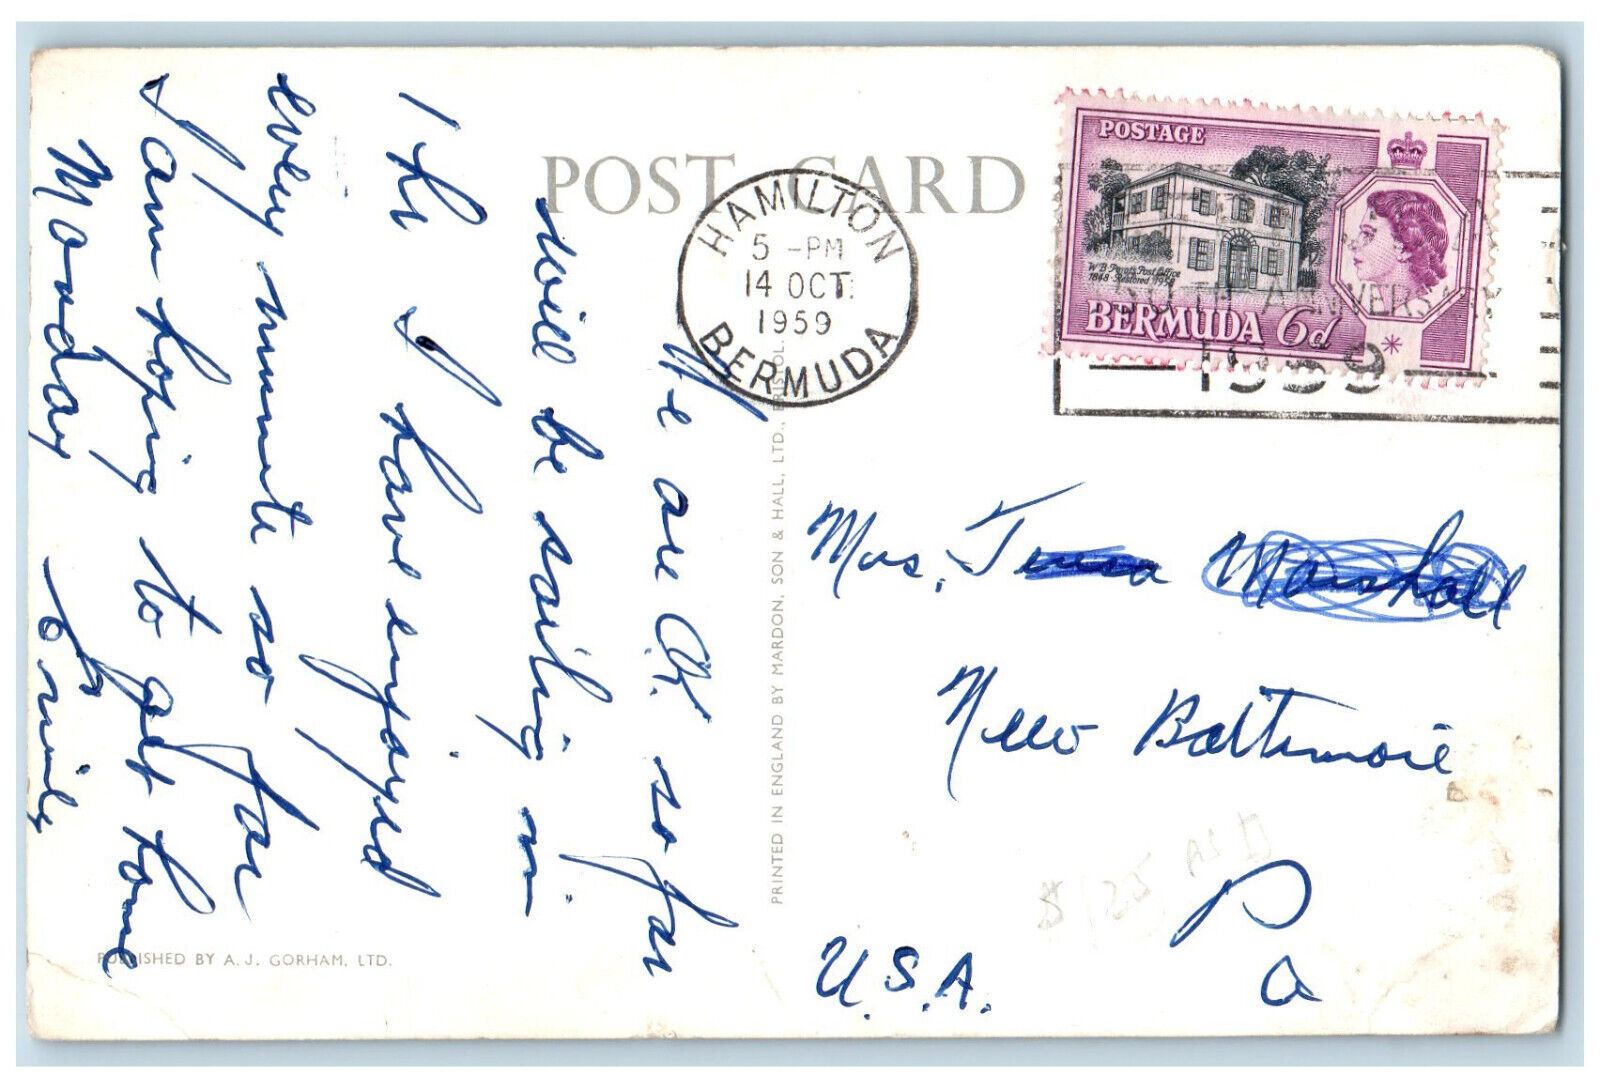 POST CARD
HAMILTON
5 - PM
14 OCT.
1959
BERMUDA
POSTAGE
W B Perot's Post Office
1848 - Restored 1958
BERMUDA 6d
ANNIVERSARY
1959
We are O.K. so far
will be sailing in
1 hr I have enjoyed
every minute so far
I am hoping to get home
Monday
Emily
PUBLISHED BY A. J. GORHAM, LTD.
PRINTED IN ENGLAND BY MARDON, SON & HALL, LTD., BRISTOL.
Mrs. Marshall
New Baltimore
Pa
U.S.A.